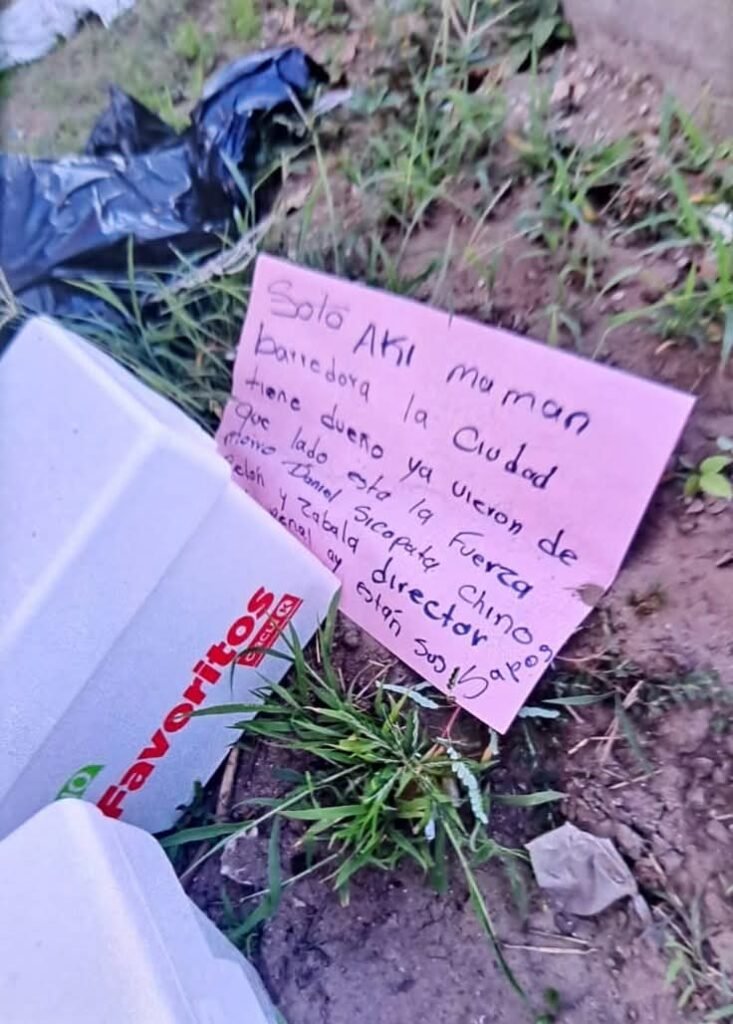 Solo AKI maman
barredora la Ciudad
tiene dueño ya vieron de
que lado esta la Fuerza
Morro Daniel Sicopata Chinos
Pelon y Zabala director
penal ay están sus bapos
Favoritos
CIRCULO K